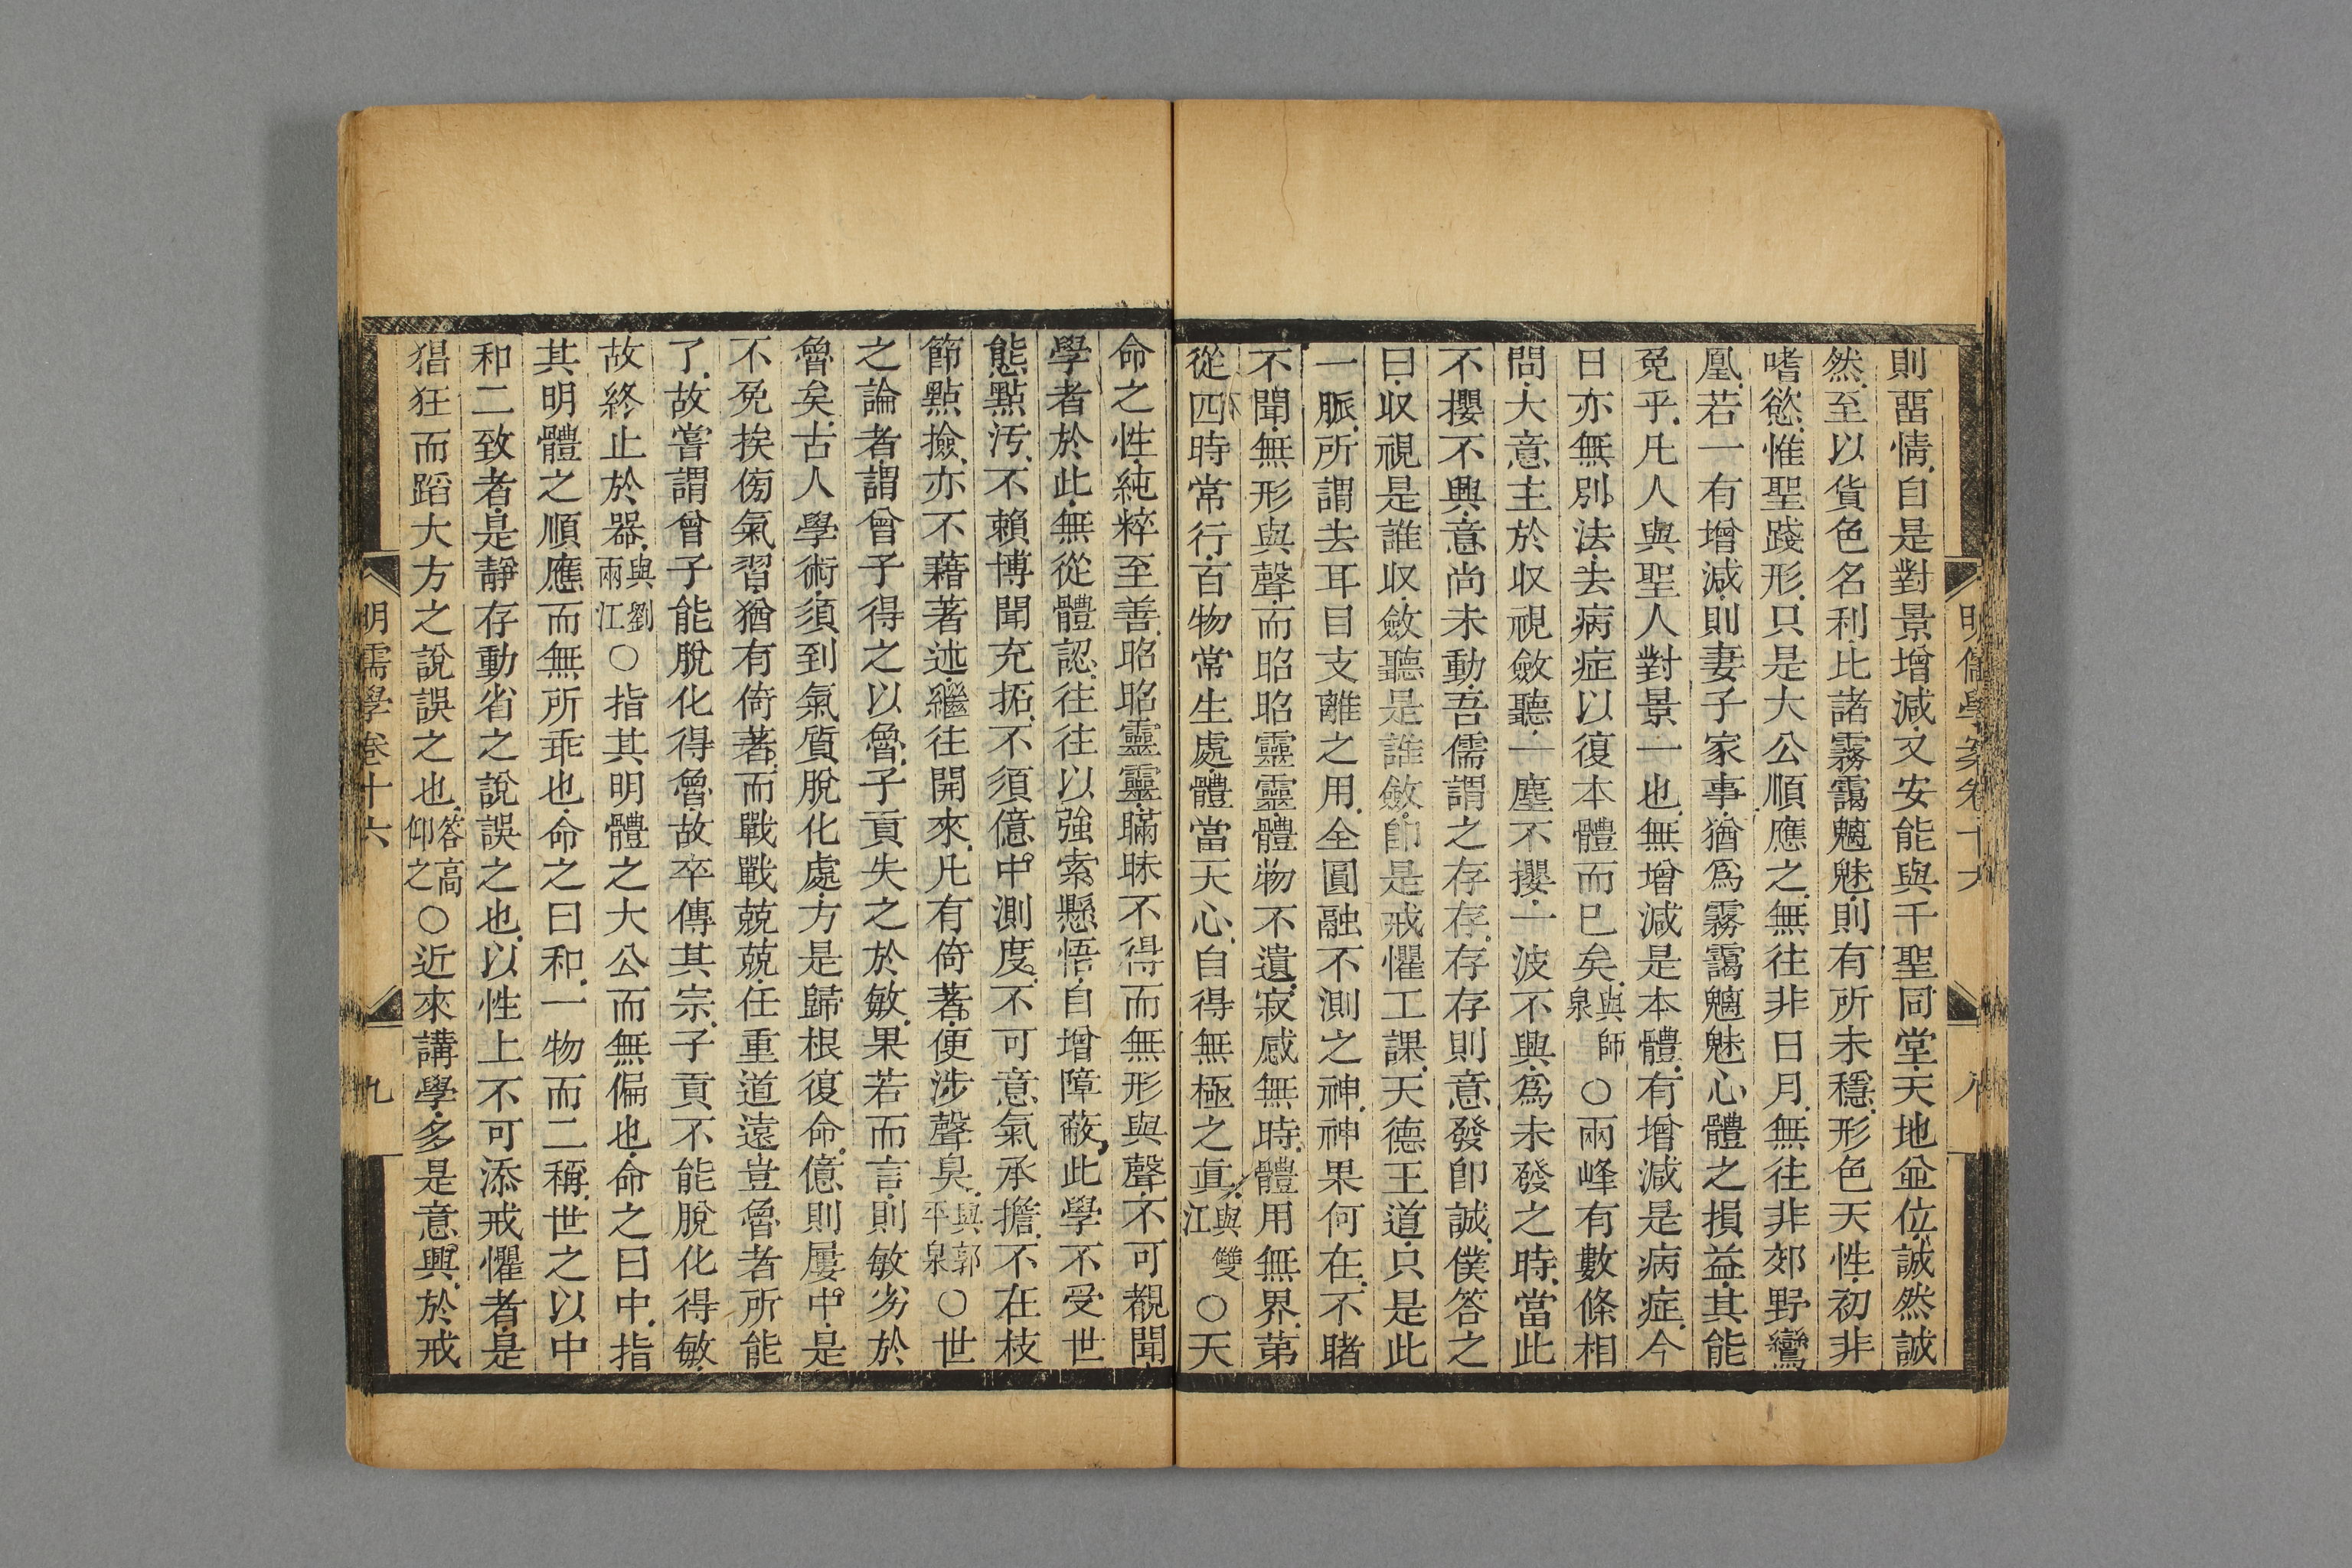 則畱情自是對景增減又安能與千聖同堂天地並位誠然誠
然至以貨色名利比諸霧靄魑魅則有所未穩形色天性初非
嗜慾惟聖踐形只是大公順應之無往非日月無往非郊野鸞
凰若一有增減則妻子家事猶爲霧靄魑魅心體之損益其能
免乎凡人與聖人對景一也無增減是本體有增減是病症今
日亦無別法去病症以復本體而已矣與師泉○兩峰有數條相
問大意主於收視斂聽一塵不攖一波不興爲未發之時當此
不攖不興意尚未動吾儒謂之存存存存則意發卽誠僕答之
曰收視是誰收斂聽是誰斂卽是戒懼工課天德王道只是此
一脈所謂去耳目支離之用全圓融不測之神神果何在不睹
不聞無形與聲而昭昭靈靈體物不遺寂感無時體用無界第
從四時常行百物常生處體當天心自得無極之眞與雙江○天
命之性純粹至善昭昭靈靈瞞昧不得而無形與聲不可覩聞
學者於此無從體認往往以強索懸悟自增障蔽此學不受世
態點汚不賴博聞充拓不須億中測度不可意氣承擔不在枝
節點撿亦不藉著述繼往開來凡有倚著便涉聲臭與郭平泉○世
之論者謂曾子得之以魯子貢失之於敏果若而言則敏劣於
魯矣古人學術須到氣質脫化處方是歸根復命億則屢中是
不免挨傍氣習猶有倚著而戰戰兢兢任重道遠豈魯者所能
了故嘗謂曾子能脫化得魯故卒傳其宗子貢不能脫化得敏
故終止於器與劉兩江○指其明體之大公而無偏也命之曰中指
其明體之順應而無所乖也命之曰和一物而二稱世之以中
和二致者是靜存動省之說誤之也以性上不可添戒懼者是
猖狂而蹈大方之說誤之也答高仰之○近來講學多是意興於戒
明儒學案卷十六 八
明儒學卷十六 九